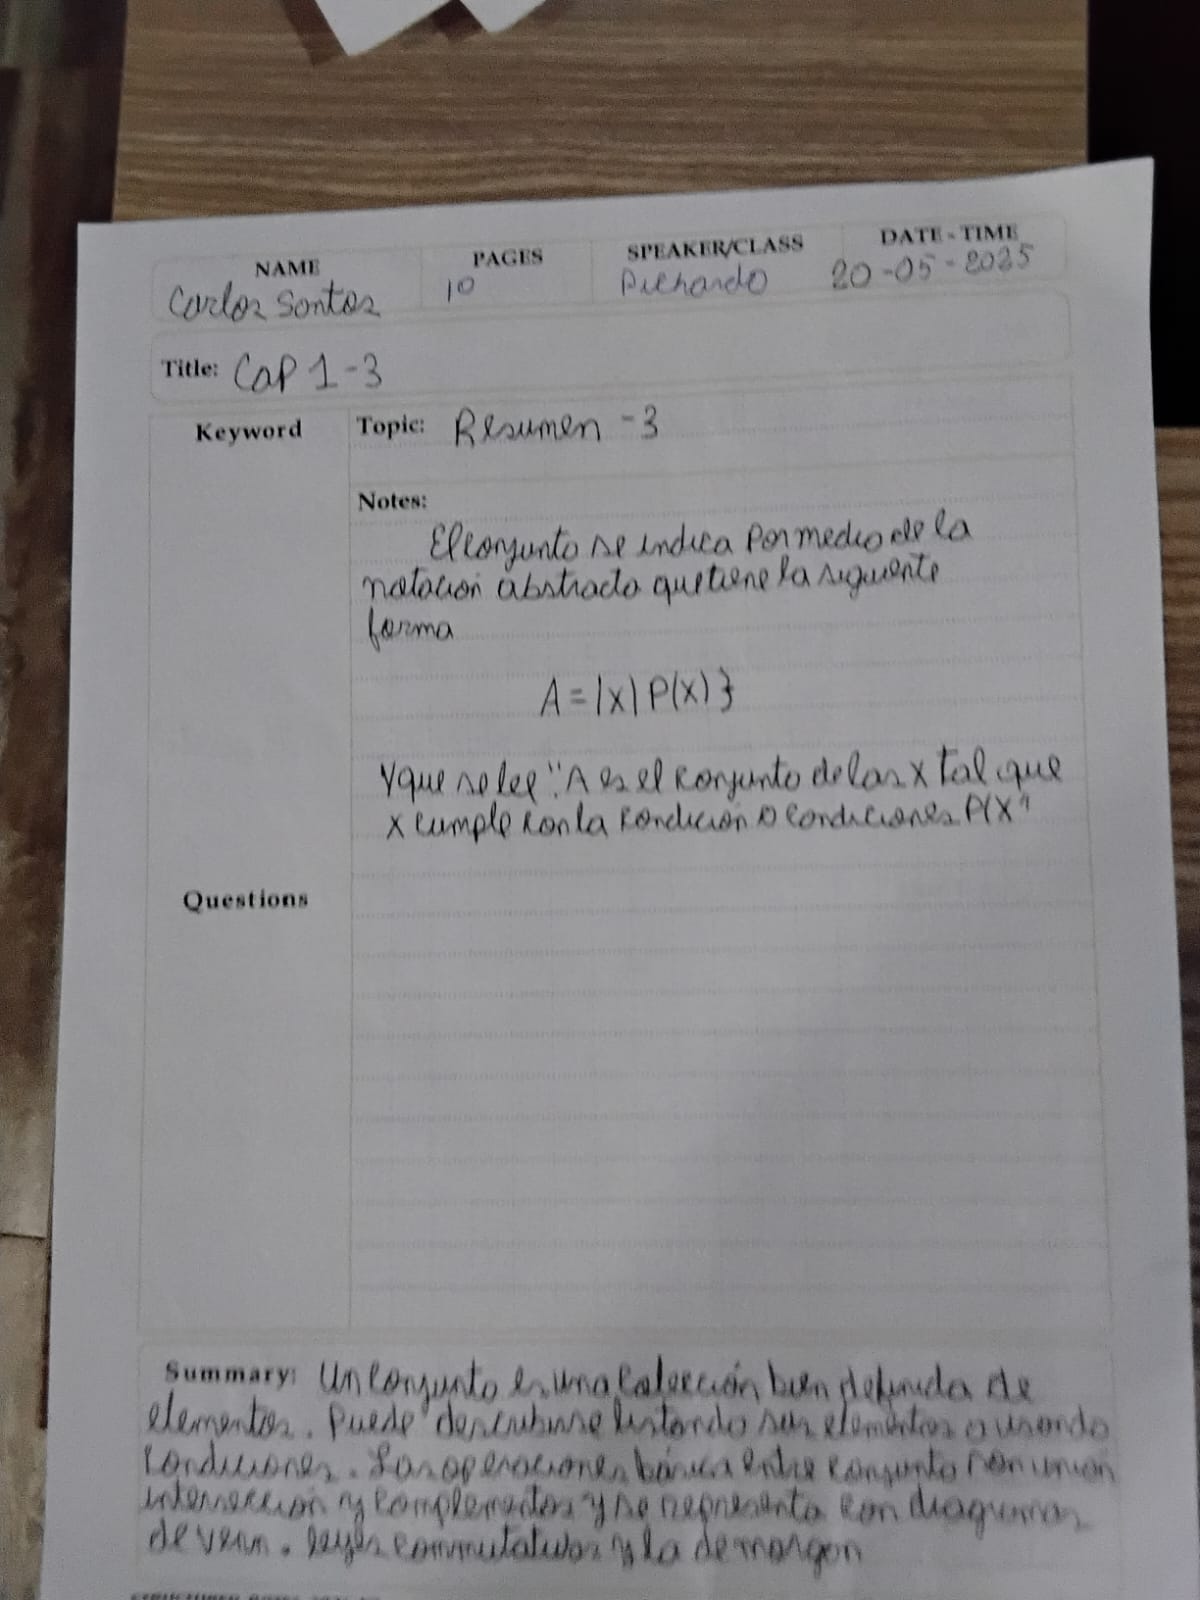 NAME PAGES SPEAKER/CLASS DATE - TIME
Carlos Santos 10 Pichardo 20-05-2025
Title: Cap 1-3
Keyword Topic: Resumen -3
Notes:
El conjunto se indica por medio de la
notación abstracta que tiene la siguiente
forma
A = |x| P(x) }
Y que se lee ". A es el conjunto de las x tal que
x cumple con la condición o condiciones P(x"
Questions
Summary: Un conjunto es una colección bien definida de
elementos. Puede describirse listando sus elementos o usando
condiciones. Las operaciones básica entre conjunto son unión
intersección y complementos y se representa con diagramas
de venn. leyes conmutativas y la de morgan